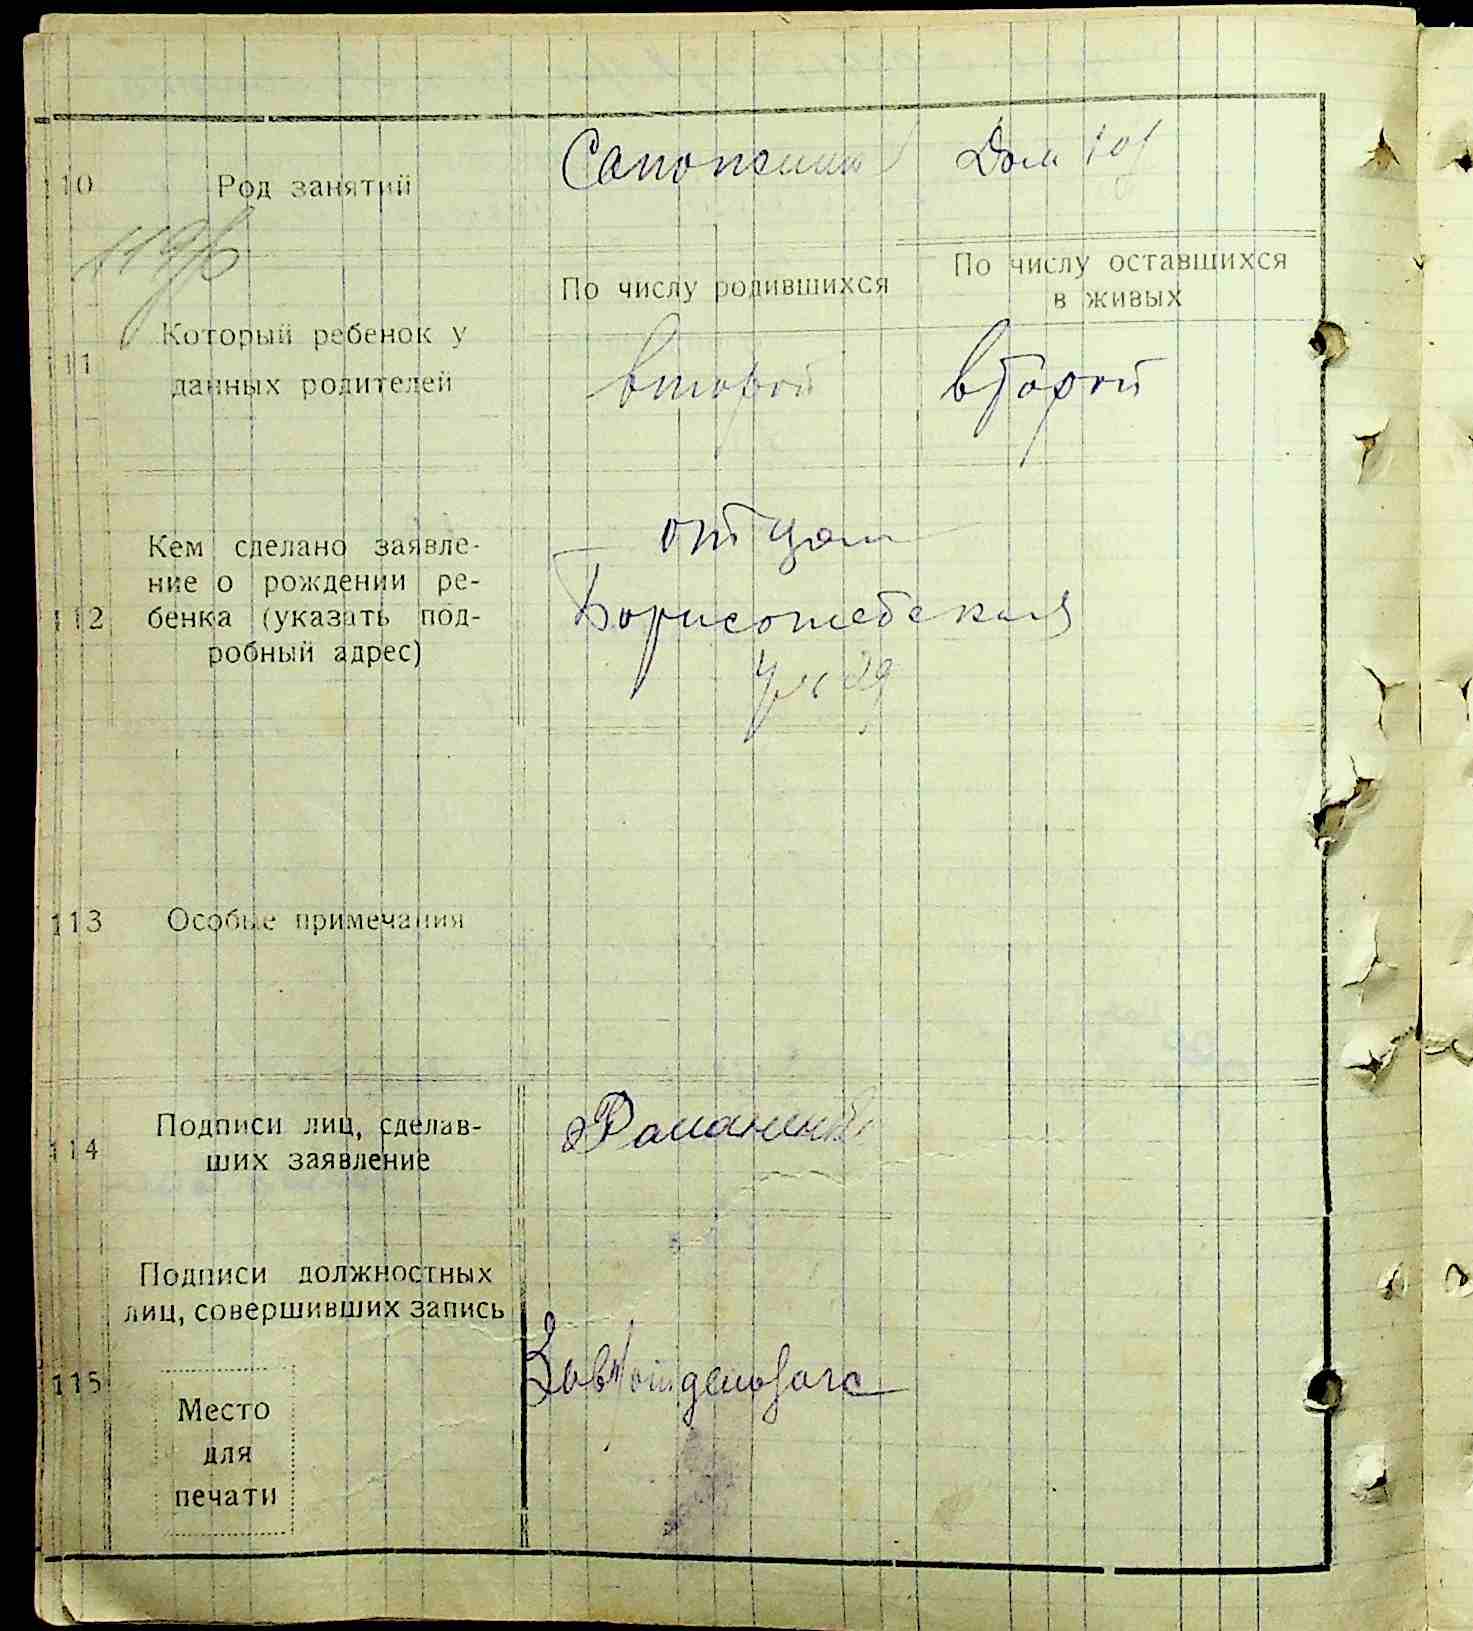 110 Род занятий Сапожник Дом хоз
По числу родившихся
По числу оставшихся
в живых
111 Который ребенок у
данных родителей
второй второй
112 Кем сделано заявле-
ние о рождении ре-
бенка (указать под-
робный адрес)
отцом
Борисоглебская
ул 29
113 Особые примечания
114 Подписи лиц, сделав-
ших заявление
115 Подписи должностных
лиц, совершивших запись
Место
для
печати